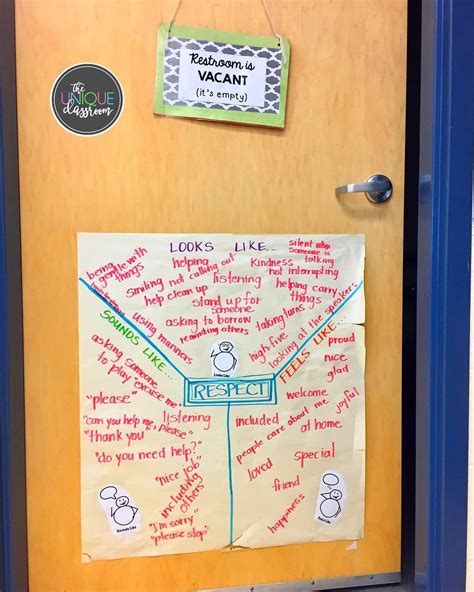 the
UNIQUE
classroom
Restroom is
VACANT
(it's empty)
LOOKS LIKE...
being
gentle with
things
helping
Kindness
silent when
someone is
talking
smiling
not calling out
listening
not interrupting
help clean up
helping carry
things
stand up for
someone
using manners
asking to borrow
reminding others
taking turns
high-five
looking at the speakers
SOUNDS LIKE...
asking
someone
to play
"excuse me"
"please"
listening
"can you help me, please"
"thank you"
"do you need help?"
"nice job"
including
others
"I'm sorry"
"please stop"
RESPECT
FEELS LIKE...
proud
nice
glad
welcome
joyful
included
people care about me
at home
loved
special
friend
happiness
Looks Like
Sounds Like
Feels Like